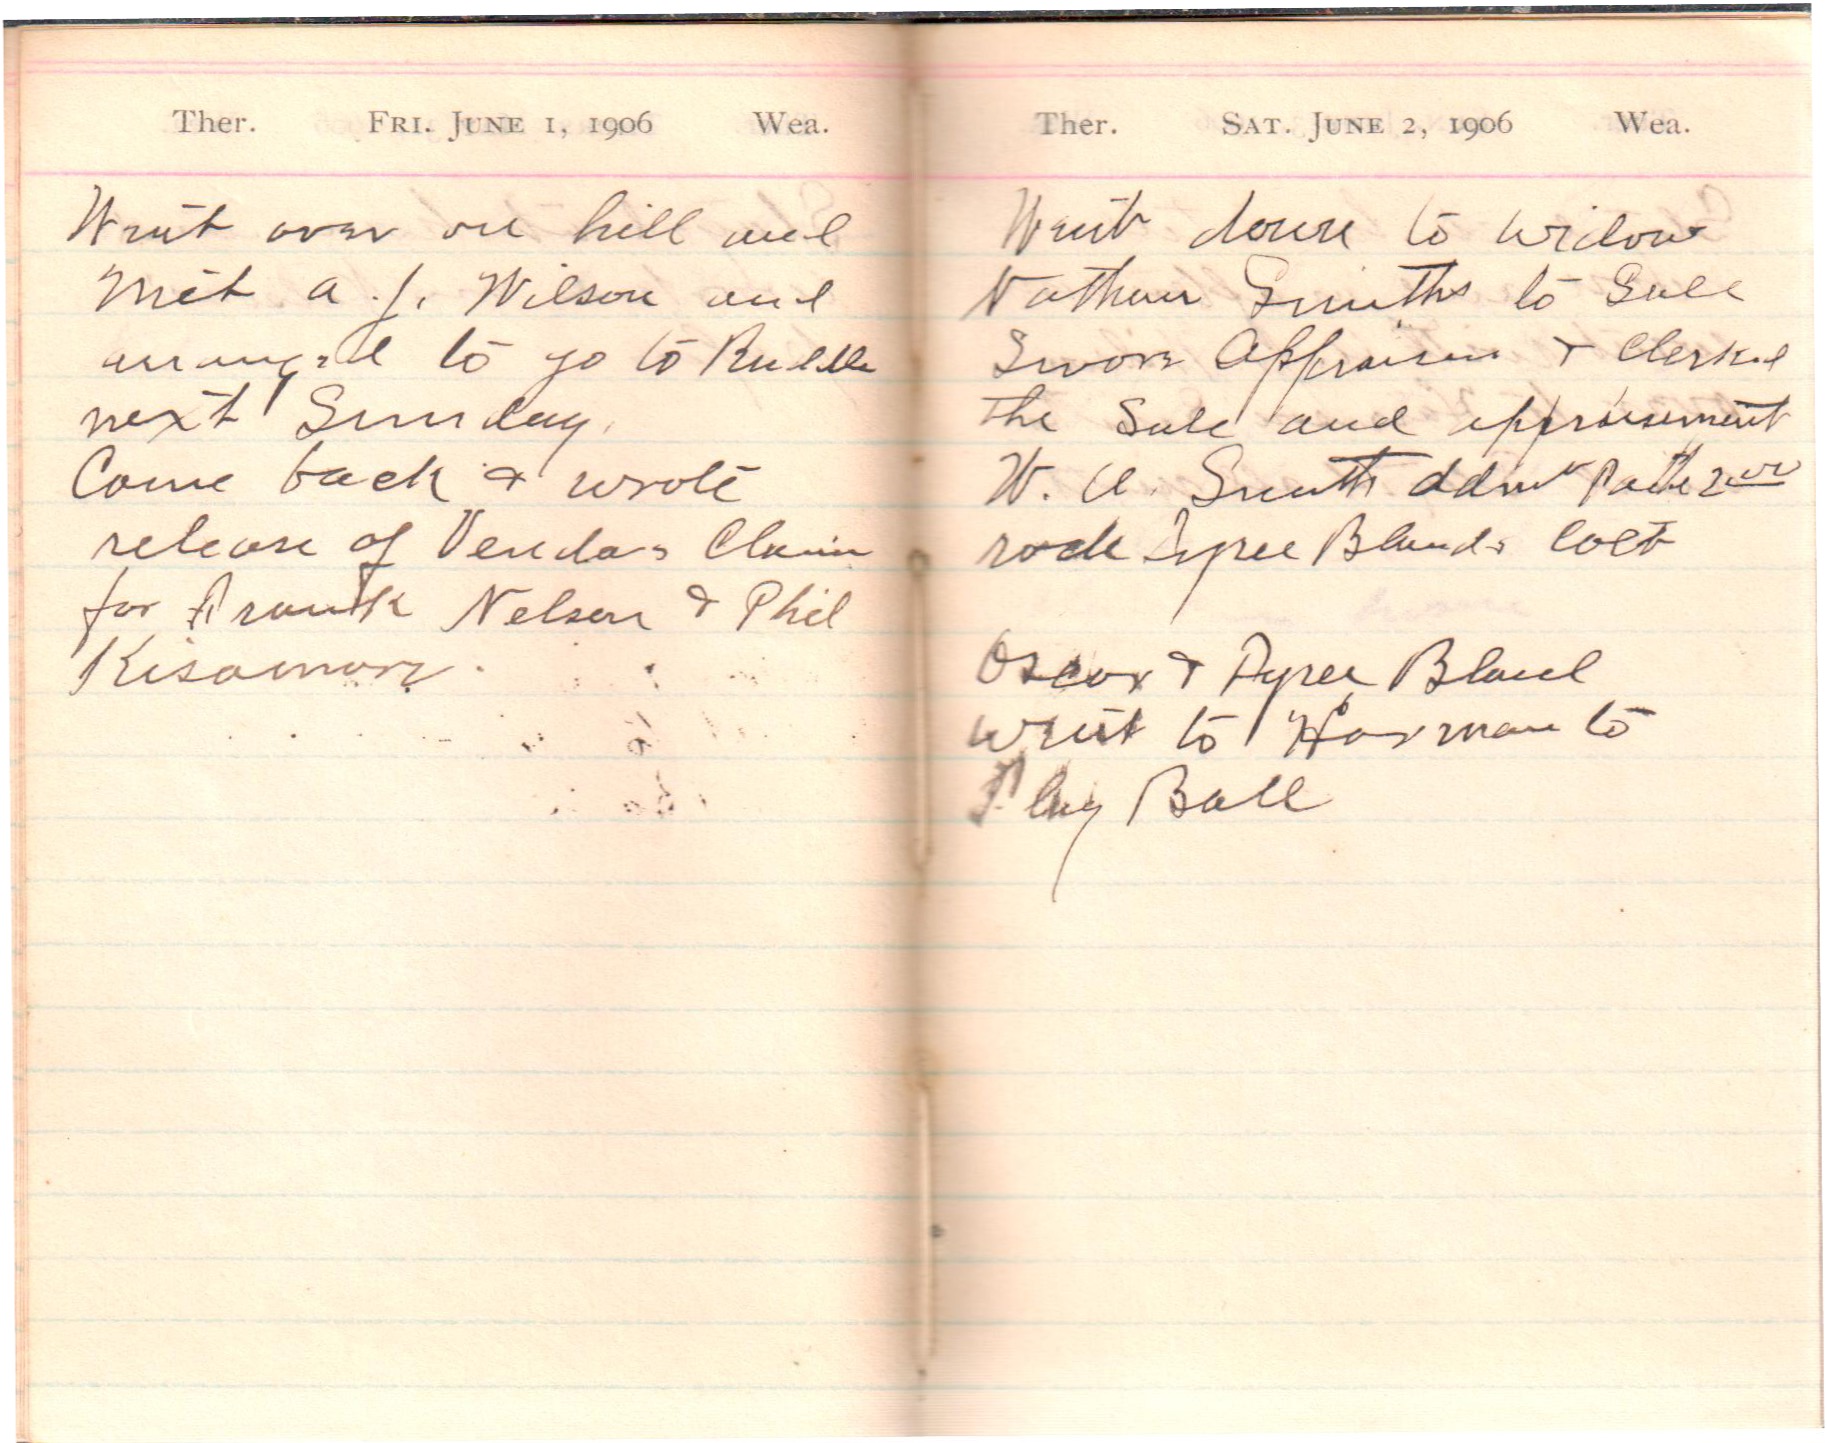 Ther. FRI. JUNE 1, 1906 Wea.
Went over on hill and
Met A. J. Wilson and
arranged to go to Ruddle
next Sunday.
Come back & wrote
release of Vendors Claim
for Frank Nelson & Phil
Kisamore.
Ther. SAT. JUNE 2, 1906 Wea.
Went down to widow
Nathan Smiths to Sale
Swore Appraisers & Clerked
the Sale and appraisement
W. A. Smith Admr
rode Tyree Blands Colt
Oscar & Tyree Bland
went to Harman to
Play Ball